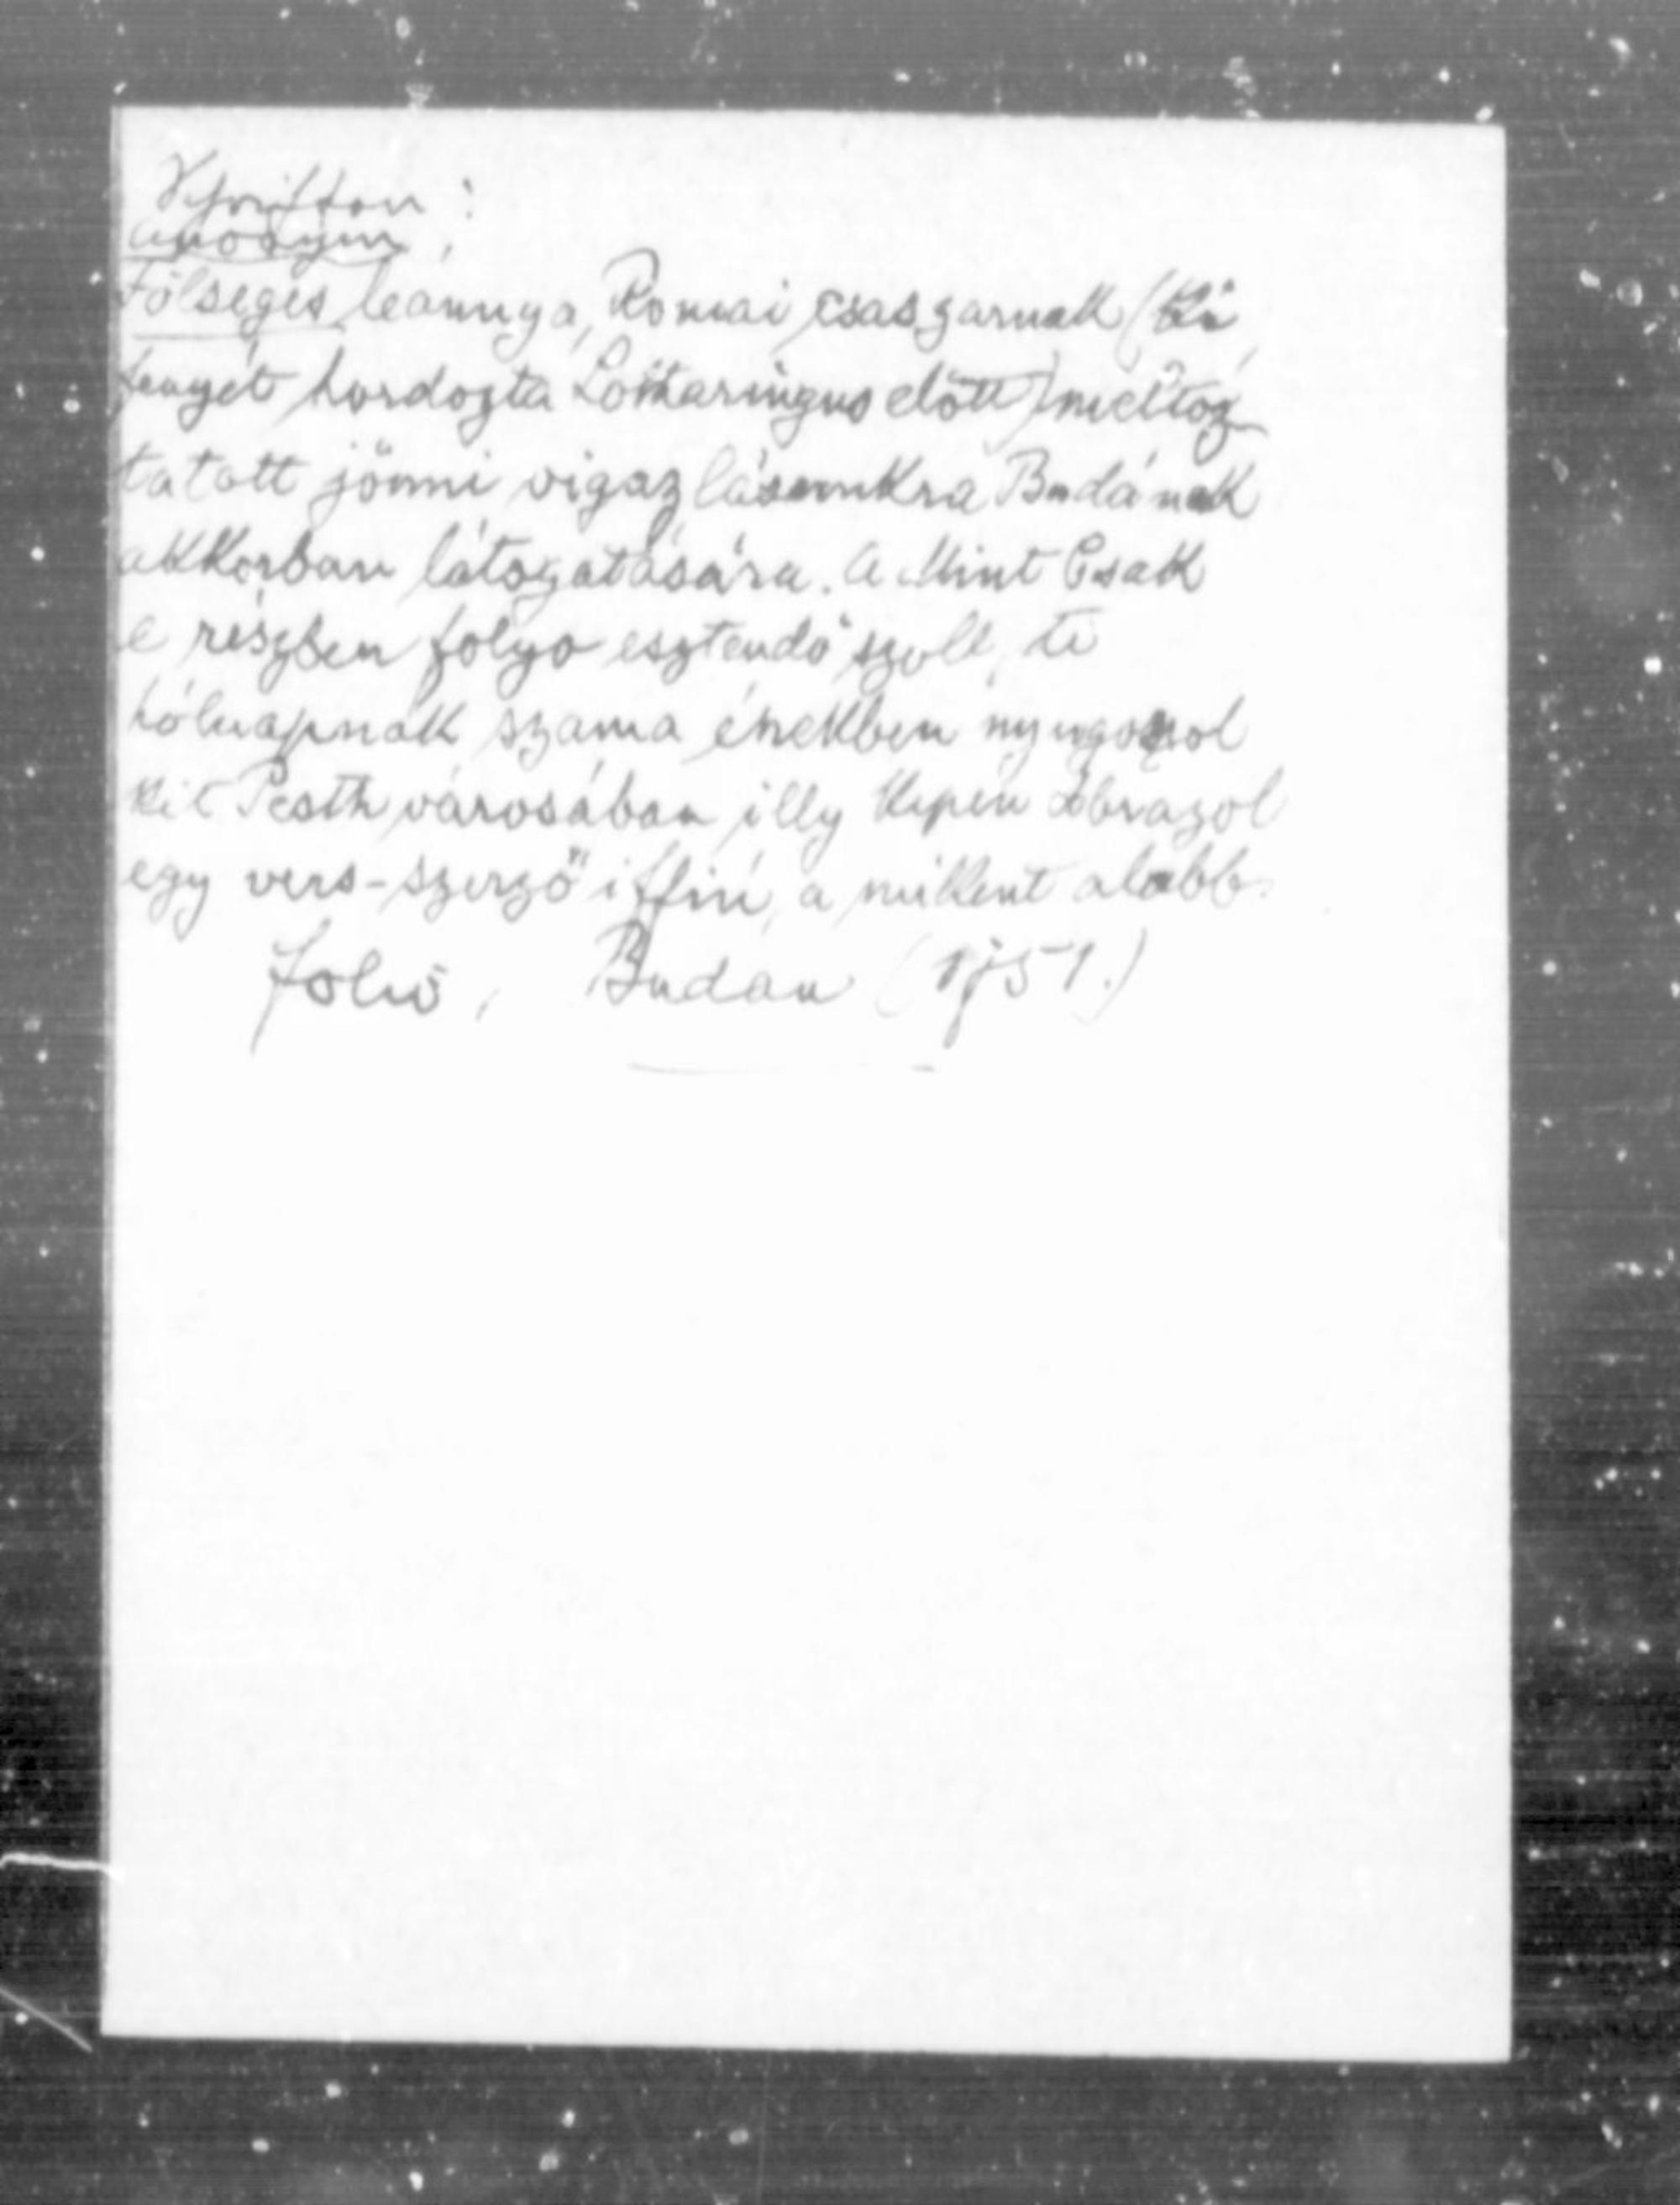 Schriften:
anonym,
Fölseges leánnya, Romai csaszarnak (ki
fenyét hordozta Lotharingus elött) meltóz
tatott jönni vigaz lásunkra Budának
akkorban látogatására. A Mint Csak
e részben folyo esztendö szoll, ti
hólnapnak szama énekben nyugosol
kit Pesth városában illy kepen ábrazol
egy vers-szerző iffiú, a mikent alabb.
folio, Budán (1751.)